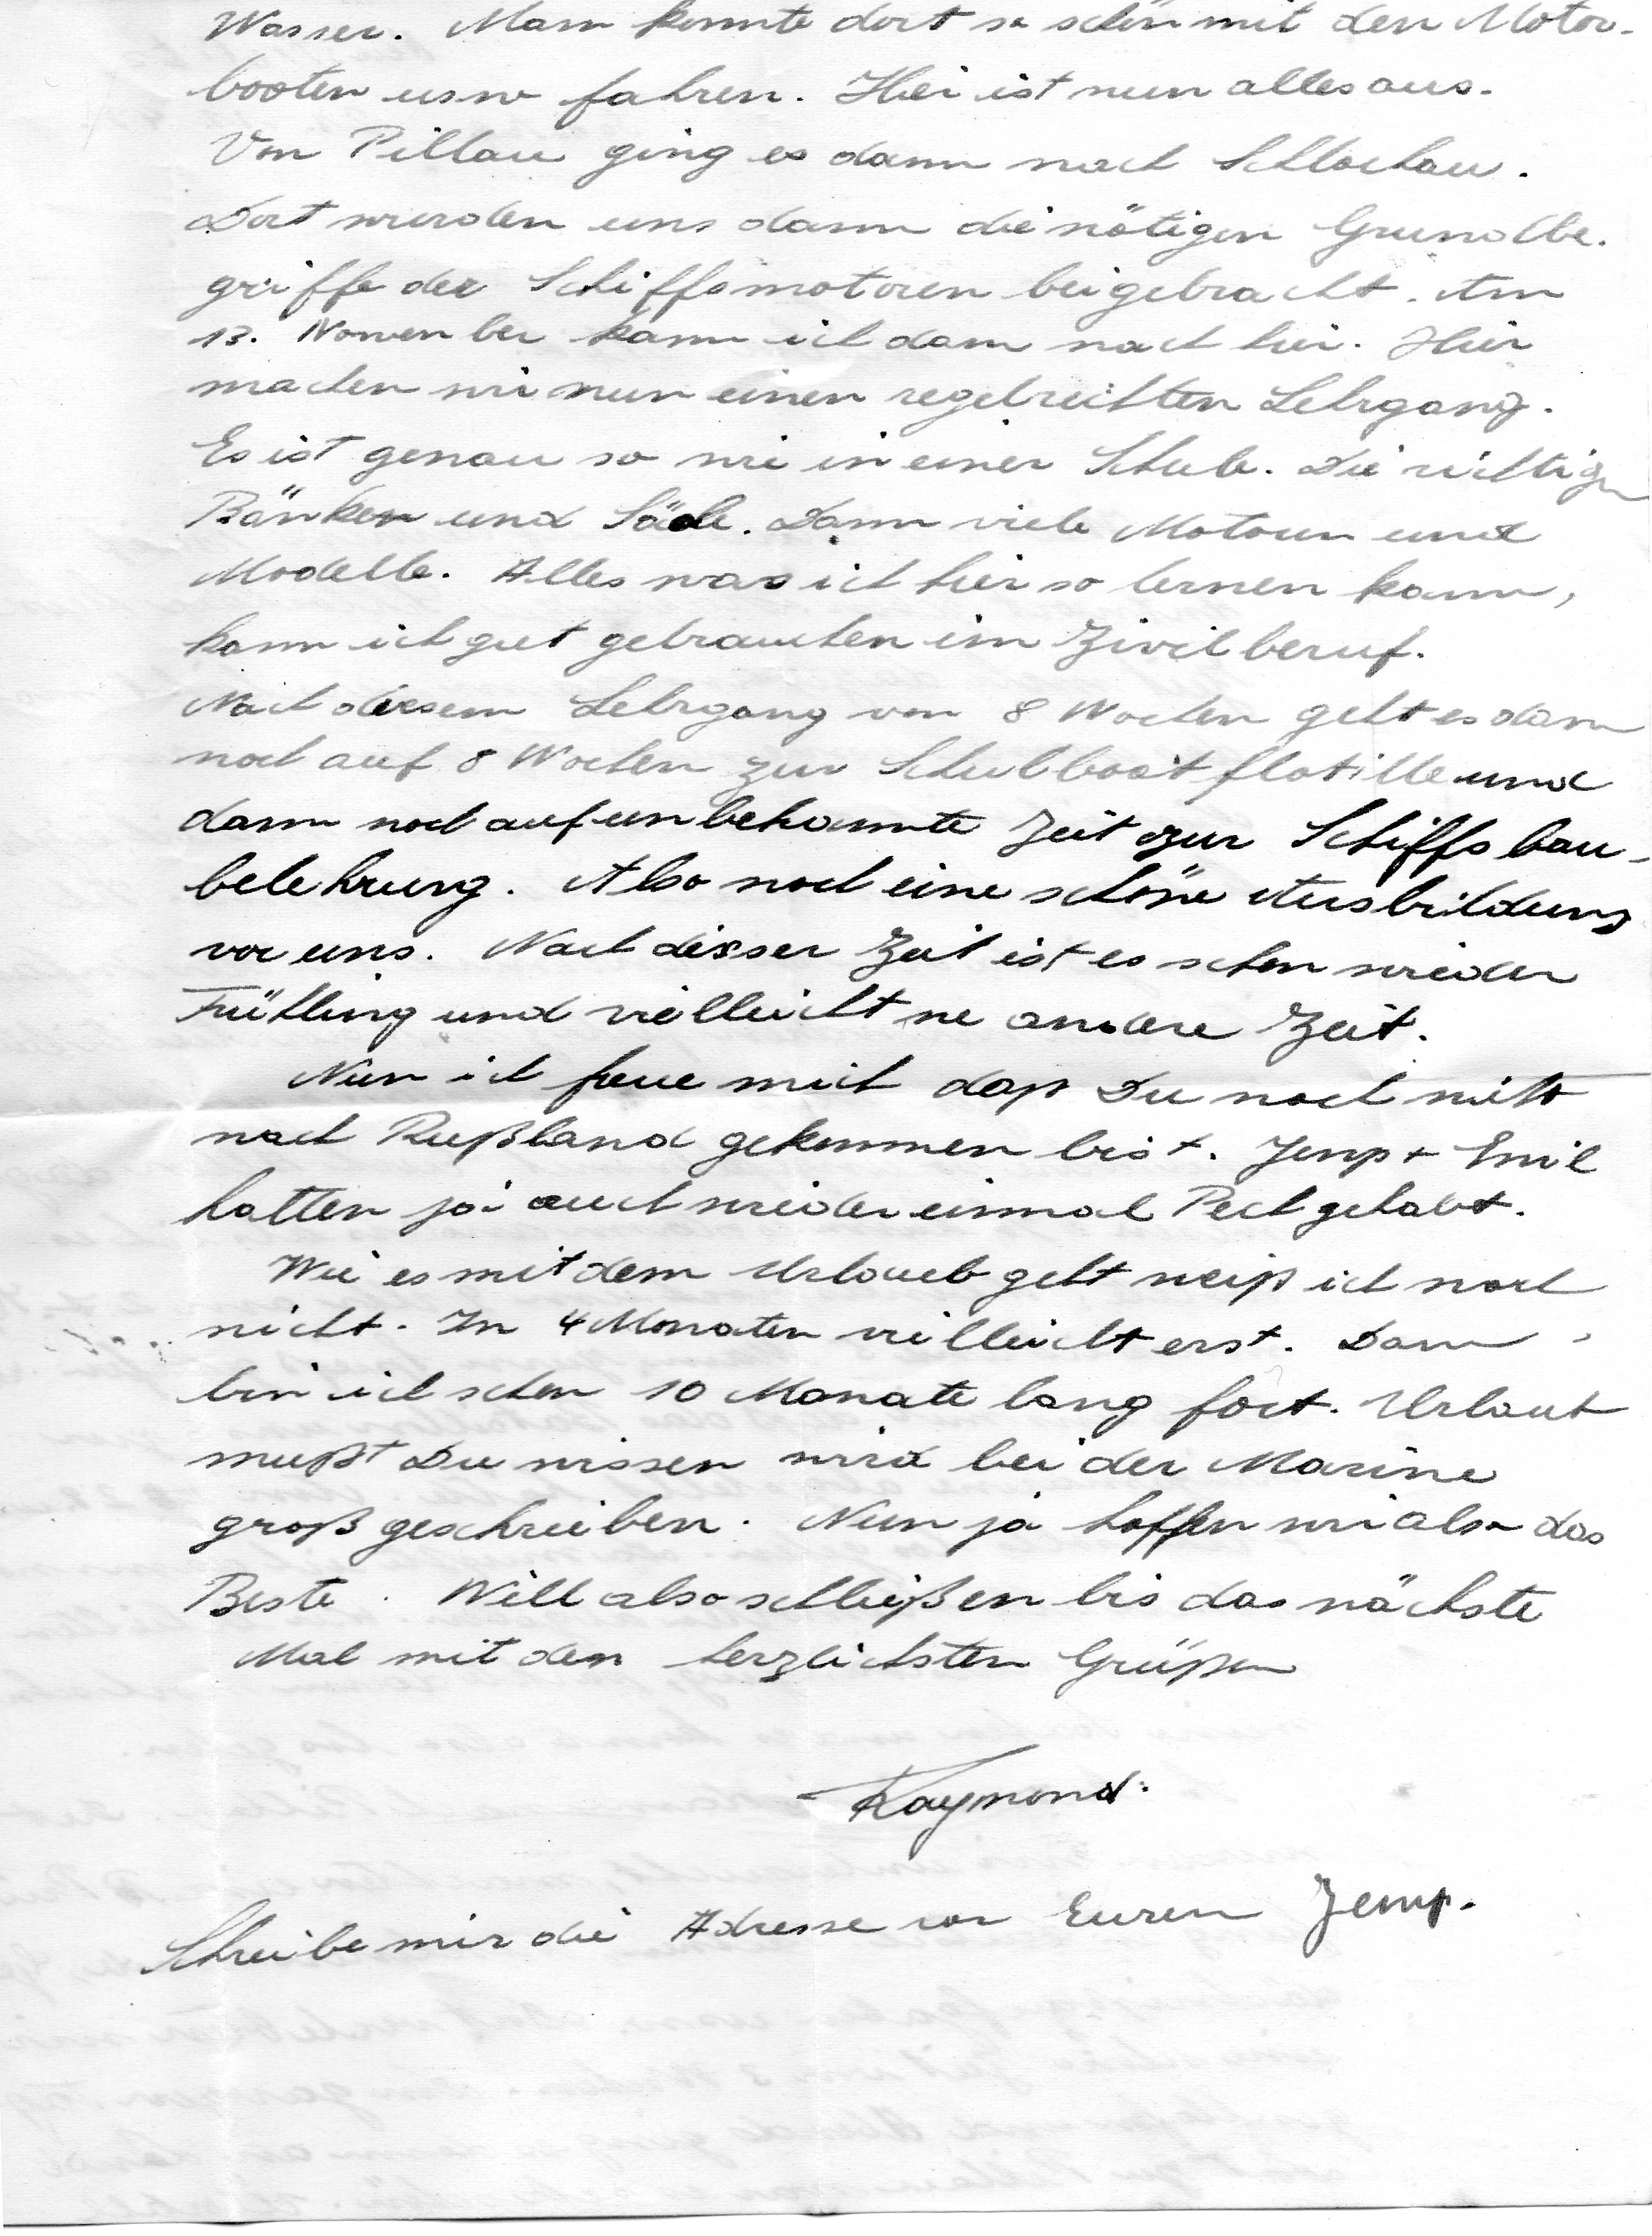 Wasser. Man konnte dort so schön mit den Motor-
booten usw fahren. Hier ist nun alles aus.
Von Pillau ging es dann nach Schlochau.
Dort wurden uns dann die nötigen Grundbe-
griffe der Schiffsmotoren beigebracht. Am
13. November kam ich dann nach hier. Hier
machen wir nun einen regelrechten Lehrgang.
Es ist genau so wie in einer Schule. Die richtigen
Bänken und Säale. Dann viele Motoren und
Modelle. Alles was ich hier so lernen kann,
kann ich gut gebrauchen im Zivilberuf.
Nach diesem Lehrgang von 8 Wochen geht es dann
noch auf 8 Wochen zur Schulbootflotille und
dann noch auf unbekannte Zeit zur Schiffsbau-
belehrung. Also noch eine schöne Ausbildung
vor uns. Nach dieser Zeit ist es schon wieder
Frühling und vielleicht ne andere Zeit.
Nun ich freue mich daß Du noch nicht
nach Rußland gekommen bist. Jemp + Emil
hatten ja auch wieder einmal Pech gehabt.
Wie es mit dem Urlaub geht weiß ich noch
nicht. In 4 Monaten vielleicht erst. Dann
bin ich schon 10 Monate lang fort. Urlaub
mußt Du wissen wird bei der Marine
groß geschrieben. Nun ja hoffen wir also das
Beste. Will also schließen bis das nächste
Mal mit den herzlichsten Grüßen
Raymond.
Schreibe mir die Adresse von Euren Jemp.